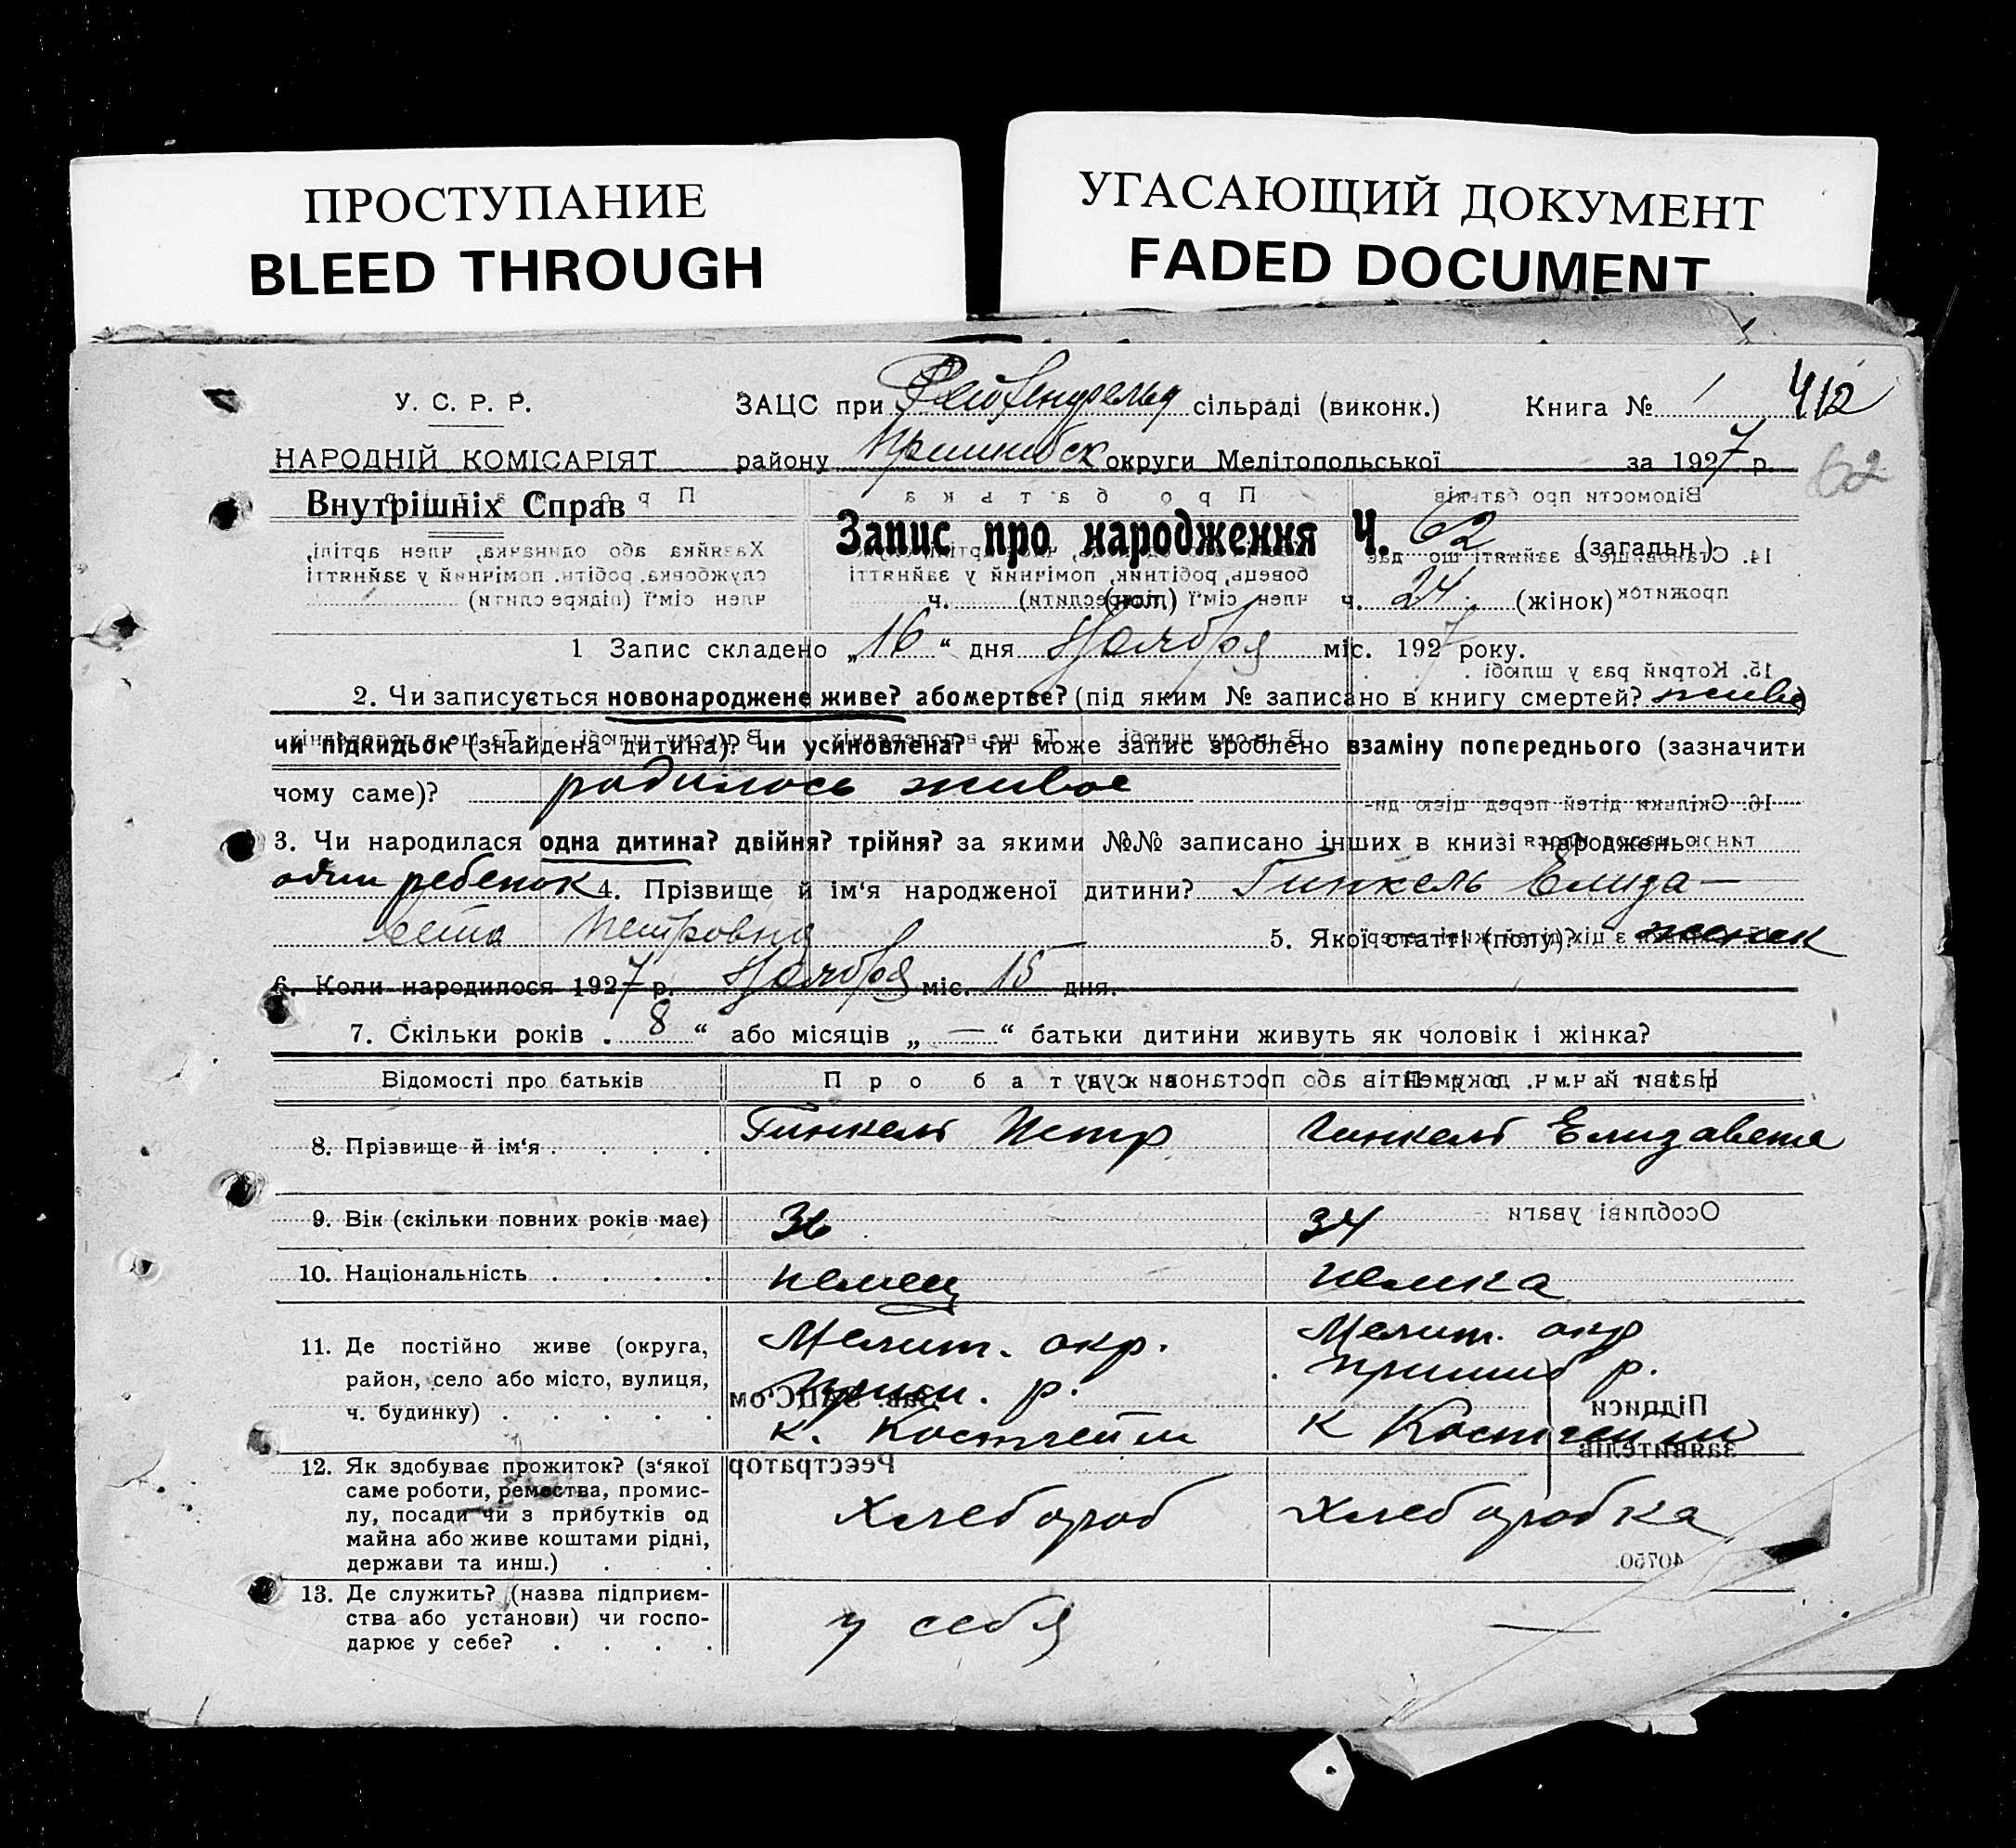 ПРОСТУПАНИЕ
BLEED THROUGH
УГАСАЮЩИЙ ДОКУМЕНТ
FADED DOCUMENT
У. С. Р. Р.
ЗАЦС при сільраді (виконк.) Книга № 1 412
НАРОДНІЙ КОМІСАРІЯТ району Пришибск округи Мелітопольської за 1927 р. 62
Внутрішніх Справ
Запис про народження Ч. 62 (загальн.)
(пол) ч. 24 (жінок)
1 Запис складено „16“ дня Ноября міс. 1927 року.
2. Чи записується новонароджене живе? або мертве? (під яким № записано в книгу смертей? живо
чи підкидьок (знайдена дитина)? чи усиновлена? чи може запис зроблено взаміну попереднього (зазначити
чому саме)? родилось живое
3. Чи народилася одна дитина? двійня? трійня? за якими №№ записано інших в книзі народжень
один ребенок 4. Прізвище й ім‘я народженої дитини? Гинкель Елиза-
вета Петровна 5. Якої статті (полу)? женск
6. Коли народилося 1927 р. Ноября міс. 15 дня.
7. Скільки років . 8 “ або місяців „ — “ батьки дитини живуть як чоловік і жінка?
Відомості про батьків Про батька
8. Прізвище й ім‘я . . . . Гинкель Петр Гинкель Елизавета
9. Вік (скільки повних років має) 36 34
10. Національність . . . . немец немка
11. Де постійно живе (округа, Мелит. окр. Мелит. окр
район, село або місто, вулиця, Приш. р. Пришиб р.
ч. будинку) . . . . . к. Костгейм к Костгейм
12. Як здобуває прожиток? (з‘якої
саме роботи, ремества, промис-
лу, посади чи з прибутків од хлебороб хлеборобка
майна або живе коштами рідні,
держави та инш.) . .
13. Де служить? (назва підприєм-
ства або установи) чи госпо- у себя —
дарює у себе? . . . .